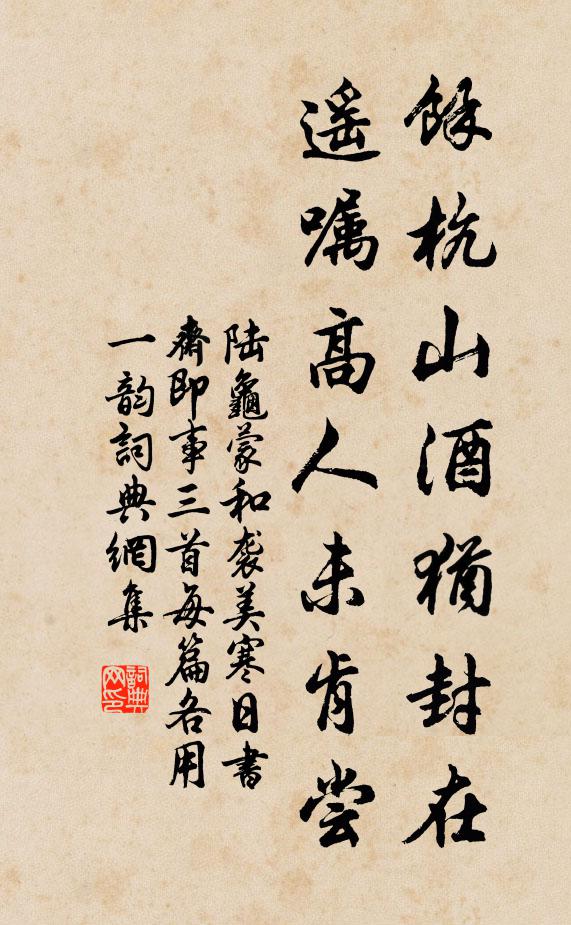 餘杭山酒猶封在
遥嘱高人未肯尝
陆龜蒙和袭美寒日書
齋即事三首每篇各用
一韵詞典網集
詞典网印